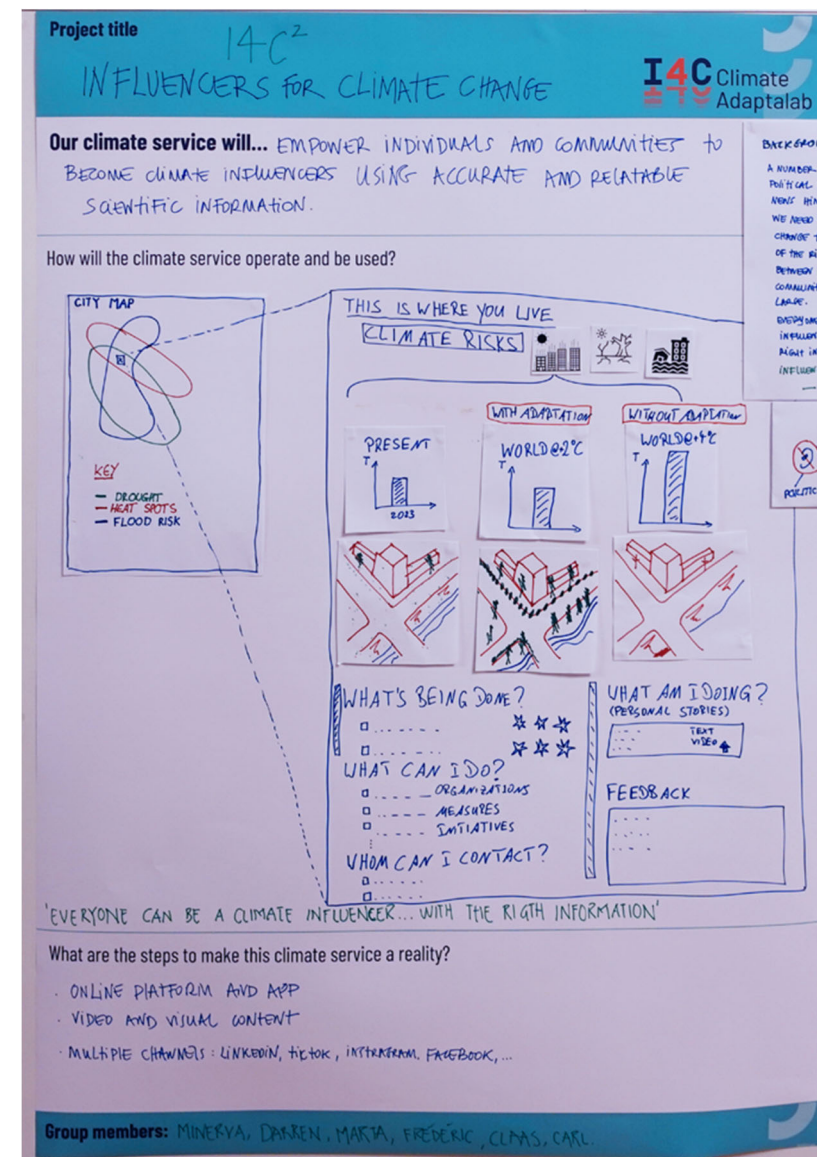 Project title
I4C²
INFLUENCERS FOR CLIMATE CHANGE
I4C Climate
Adaptalab
Our climate service will... EMPOWER INDIVIDUALS AND COMMUNITIES TO
BECOME CLIMATE INFLUENCERS USING ACCURATE AND RELATABLE
SCIENTIFIC INFORMATION.
A NUMBER
POLITICAL
NEWS
WE NEED
CHANGE
OF THE
BETWEEN
LARGE.
How will the climate service operate and be used?
CITY MAP
KEY
DROUGHT
HEAT SPOTS
FLOOD RISK
THIS IS WHERE YOU LIVE
CLIMATE RISKS
WITH ADAPTATION
WITHOUT ADAPTATION
PRESENT
T
2023
WORLD@+2°C
T
WORLD@+4°C
T
WHAT'S BEING DONE?
WHAT CAN I DO?
ORGANIZATIONS
MEASURES
INITIATIVES
WHOM CAN I CONTACT?
WHAT AM I DOING?
(PERSONAL STORIES)
TEXT
VIDEO
FEEDBACK
'EVERYONE CAN BE A CLIMATE INFLUENCER... WITH THE RIGTH INFORMATION'
What are the steps to make this climate service a reality?
· ONLINE PLATFORM AND APP
· VIDEO AND VISUAL CONTENT
· MULTIPLE CHANNELS: LINKEDIN, TIKTOK, INSTRAGRAM, FACEBOOK,...
Group members: MINERVA, DARREN, MARTA, FRÉDÉRIC, CLAAS, CARL.